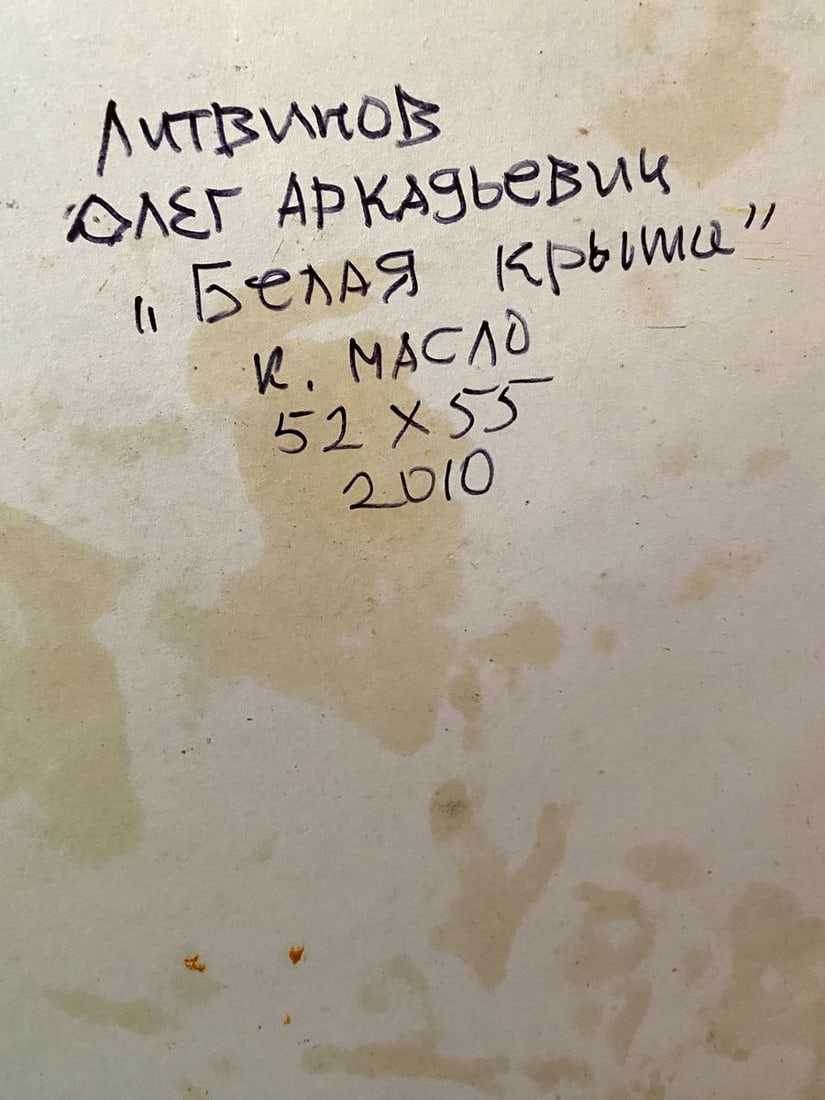 ЛИТВИНОВ
ОЛЕГ АРКАДЬЕВИЧ
„БЕЛАЯ КРЫША”
К. МАСЛО
52 X 55
2010